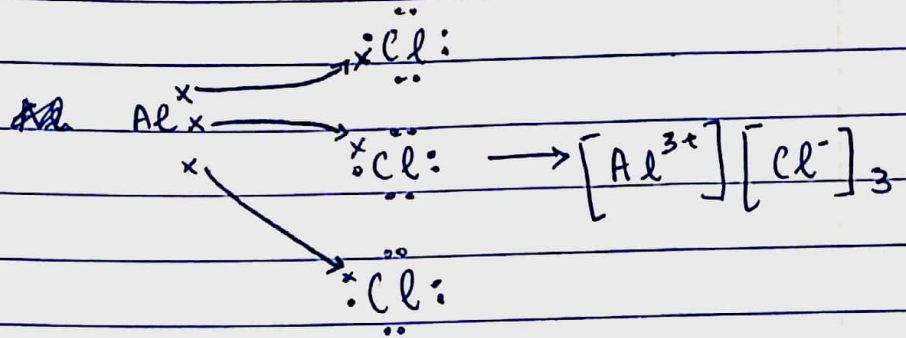 Al × × ×
×• Cl :
×• Cl : → [Al³⁺] [Cl⁻]₃
×• Cl :